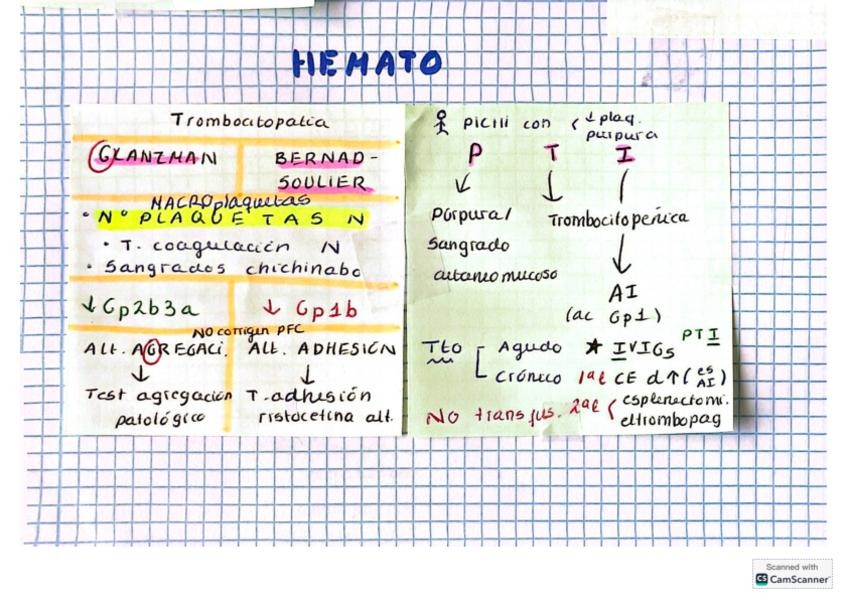 HEMATO
Trombocitopatia
GLANZMAN
BERNAD-
SOULIER
MACROplaquetas
• Nº PLAQUETAS N
• T. coagulación N
• Sangrados chichinabo
↓ Gp2b3a
↓ Gp1b
NO corrigen PFC
ALT. AGREGACI.
ALT. ADHESIÓN
↓
↓
Test agregación
patológico
T. adhesión
ristocetina alt.
PICHI con < ↓ plaq.
púrpura
P T I
Púrpura/
Sangrado
cutaneo mucoso
Trombocitopénica
AI
(ac Gp1)
PTI
Tto Agudo ★ IVIGs
Crónico 1ªL CE d↑ (es AI)
No transfus. 2ªL < esplenectomi.
eltrombopag
Scanned with
CS CamScanner